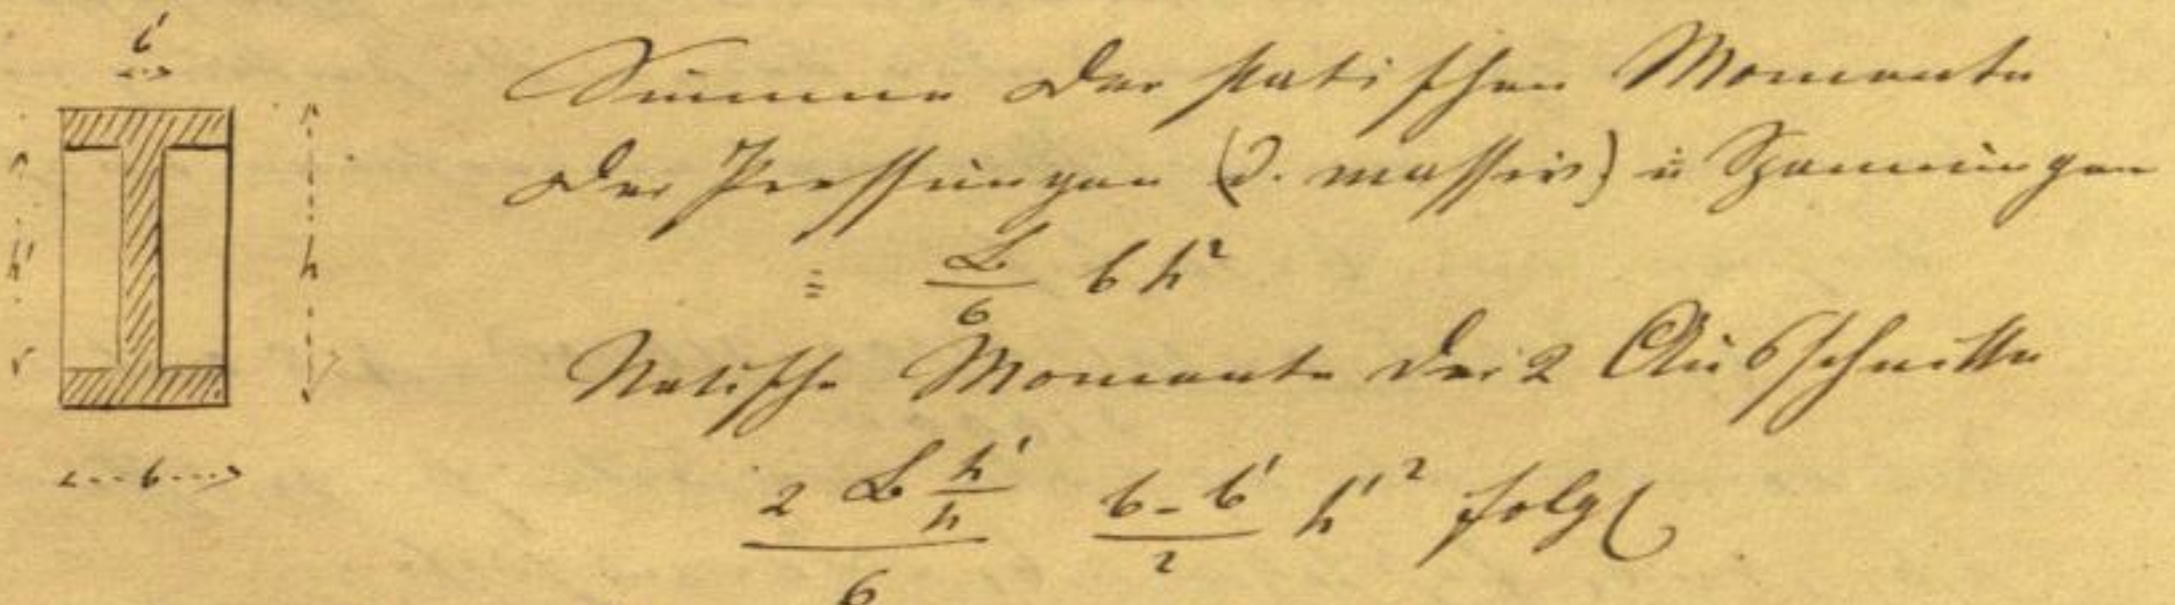 b'
h'
h
b
Summe der statischen Momente
der Pressungen (d. massiv) u Spannungen
= \frac{L}{6} b h^2
Statische Momente der 2 Ausschnitte
\frac{2 L \frac{h'}{h}}{6} \frac{b-b'}{2} h'^2 folgl